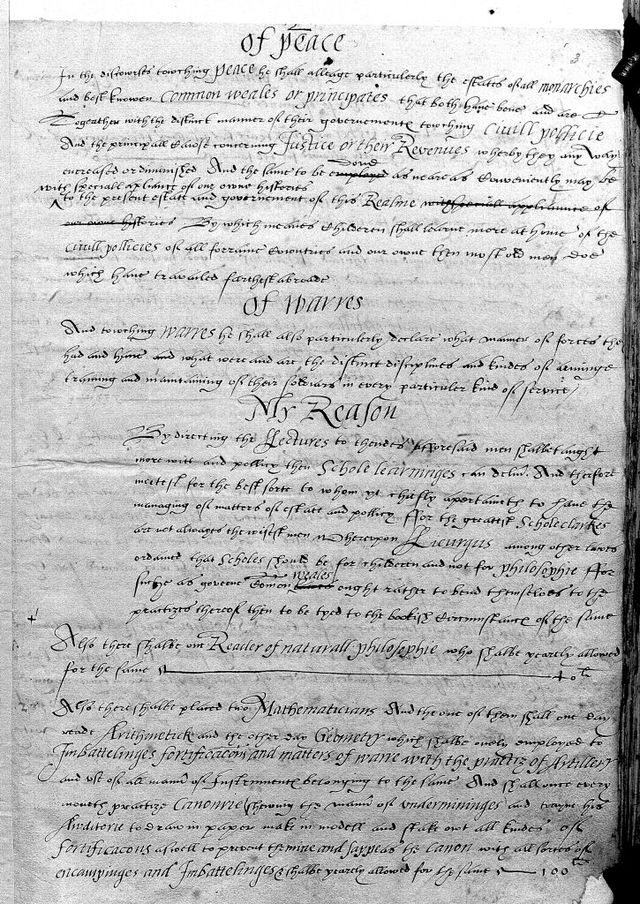 3
Of peace
In the discourses towching peace he shall alleage particularly the estates of all monarchies
and best knowen Common weales or principates that both have bene and are
Togeather with the distinct manner of their governementes towching Civill pollicie
And the principall cause concerning Justice or their Revenues wherby they any way
encreased or diminished And the same to be employed done as neare as conveniently may be
with speciall apliance of our owne histories
to the present estate and governement of this Realme with speciall appliaunce of
our owne histories By which meanes Children shall learne more at home of the
Civill pollicies of all forraine Countries and our owne then most old men doe
which have travailed farthest abroade
Of Warres
And towching warres he shall also particularly declare what manner of forces the
had and have and what were and are the distinct disciplines and kindes of arminge
training and maintaining of their soldiars in every particuler kind of service
My Reason
By directing the Lectures to thendes afforesaid men shalbe taught
more witt and pollicy then Schole learninges can deliver And therefore
meetest for the best sorte to whom yt chiefly apertaineth to have the
managing of matters of estate and pollicy ffor the greatest Schole clarkes
are not alwayes the wisest men Whereupon Licurgus among other lawes
ordained that Scholes should be for Children and not for philosophie ffor
suche as governe Comon weales ought rather to bend themselves to the
practizes thereof then to be tyed to the bookish Circumstances of the same
Also there shalbe one Reader of naturall philosophie who shalbe yearely allowed
for the same 40 li
Also there shalbe placed two Mathematicians And the one of them shall one day
reade Arithmetick and the other day Geometry which shalbe onely employed to
Imbattelinges fortificacions and matters of warre with the practiz of Artillery
and use of all manner of Instrumentes belonging to the same And shall once every
moneth practize Canonrie shewing the manner of underminings and trayne his
Awditorie to draw in paper make in modell and stake owt all kindes of
fortificacons aswell to prevent the mine and sappe as the Canon with all sortes of
encampinges and Imbattelinges & shalbe yearely allowed for the same 100 li